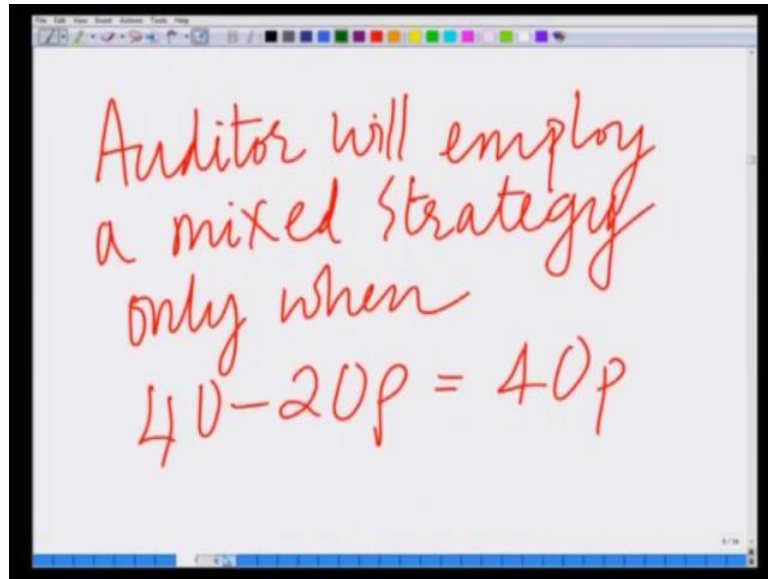 File Edit View Insert Actions Tools Help
Auditor will employ
a mixed strategy
only when
40-20p = 40p